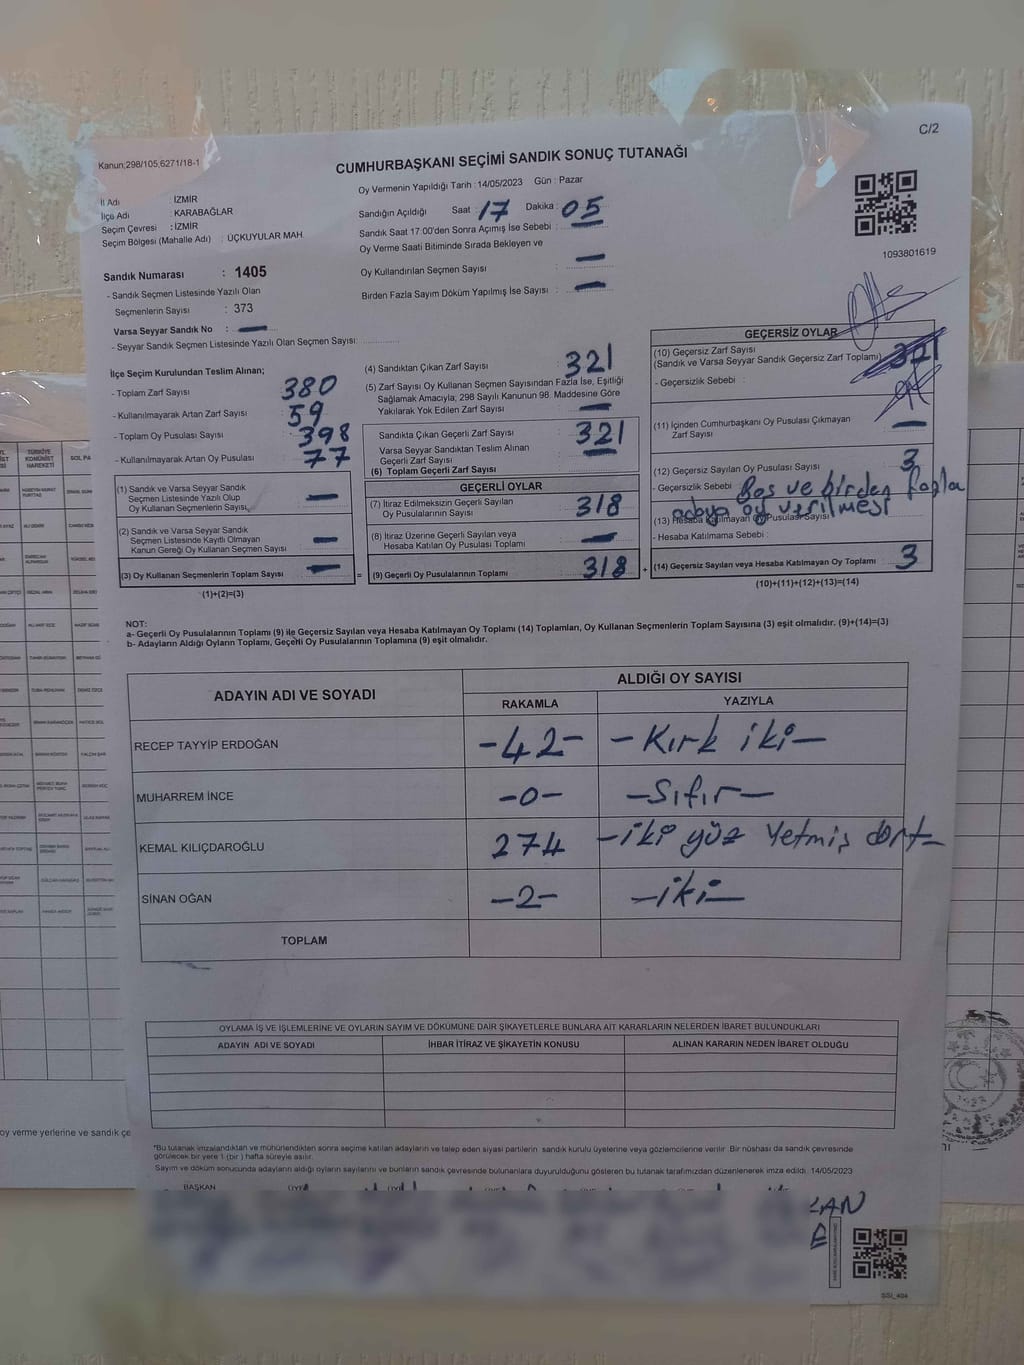 C/2
Kanun;298/105,6271/18-1
CUMHURBAŞKANI SEÇİMİ SANDIK SONUÇ TUTANAĞI
İl Adı : İZMİR
İlçe Adı : KARABAĞLAR
Seçim Çevresi : İZMİR
Seçim Bölgesi (Mahalle Adı) : ÜÇKUYULAR MAH.
Oy Vermenin Yapıldığı Tarih : 14/05/2023 Gün : Pazar
Sandığın Açıldığı Saat : 17 Dakika : 05
Sandık Saat 17:00'den Sonra Açımış İse Sebebi : —
Oy Verme Saati Bitiminde Sırada Bekleyen ve
Oy Kullandırılan Seçmen Sayısı : —
Birden Fazla Sayım Döküm Yapılmış İse Sayısı : —
1093801619
Sandık Numarası : 1405
- Sandık Seçmen Listesinde Yazılı Olan
Seçmenlerin Sayısı : 373
Varsa Seyyar Sandık No : —
- Seyyar Sandık Seçmen Listesinde Yazılı Olan Seçmen Sayısı:
İlçe Seçim Kurulundan Teslim Alınan;
- Toplam Zarf Sayısı 380
- Kullanılmayarak Artan Zarf Sayısı : 59
- Toplam Oy Pusulası Sayısı : 398
- Kullanılmayarak Artan Oy Pusulası : 77
(1) Sandık ve Varsa Seyyar Sandık
Seçmen Listesinde Yazılı Olup
Oy Kullanan Seçmenlerin Sayısı —
(2) Sandık ve Varsa Seyyar Sandık
Seçmen Listesinde Kayıtlı Olmayan
Kanun Gereği Oy Kullanan Seçmen Sayısı —
(3) Oy Kullanan Seçmenlerin Toplam Sayısı —
(1)+(2)=(3)
(4) Sandıktan Çıkan Zarf Sayısı : 321
(5) Zarf Sayısı Oy Kullanan Seçmen Sayısından Fazla İse, Eşitliği
Sağlamak Amacıyla; 298 Sayılı Kanunun 98. Maddesine Göre
Yakılarak Yok Edilen Zarf Sayısı : —
Sandıkta Çıkan Geçerli Zarf Sayısı : 321
Varsa Seyyar Sandıktan Teslim Alınan
Geçerli Zarf Sayısı : —
(6) Toplam Geçerli Zarf Sayısı
GEÇERLİ OYLAR
(7) İtiraz Edilmeksizin Geçerli Sayılan
Oy Pusulalarının Sayısı : 318
(8) İtiraz Üzerine Geçerli Sayılan veya
Hesaba Katılan Oy Pusulası Toplamı : —
= (9) Geçerli Oy Pusulalarının Toplamı : 318 +
GEÇERSİZ OYLAR
(10) Geçersiz Zarf Sayısı
(Sandık ve Varsa Seyyar Sandık Geçersiz Zarf Toplamı) 321
- Geçersizlik Sebebi :
(11) İçinden Cumhurbaşkanı Oy Pusulası Çıkmayan
Zarf Sayısı : —
(12) Geçersiz Sayılan Oy Pusulası Sayısı : 3
- Geçersizlik Sebebi : Boş ve birden fazla
adaya oy verilmesi
(13) Hesaba Katılmayan Oy Pusulası Sayısı
- Hesaba Katılmama Sebebi :
(14) Geçersiz Sayılan veya Hesaba Katılmayan Oy Toplamı : 3
(10)+(11)+(12)+(13)=(14)
NOT:
a- Geçerli Oy Pusulalarının Toplamı (9) ile Geçersiz Sayılan veya Hesaba Katılmayan Oy Toplamı (14) Toplamları, Oy Kullanan Seçmenlerin Toplam Sayısına (3) eşit olmalıdır. (9)+(14)=(3)
b- Adayların Aldığı Oyların Toplamı, Geçerli Oy Pusulalarının Toplamına (9) eşit olmalıdır.
ADAYIN ADI VE SOYADI
ALDIĞI OY SAYISI
RAKAMLA YAZIYLA
RECEP TAYYİP ERDOĞAN -42- -Kırk iki-
MUHARREM İNCE -0- -Sıfır-
KEMAL KILIÇDAROĞLU 274 -iki yüz Yetmiş dört-
SİNAN OĞAN -2- -iki-
TOPLAM
OYLAMA İŞ VE İŞLEMLERİNE VE OYLARIN SAYIM VE DÖKÜMÜNE DAİR ŞİKAYETLERLE BUNLARA AİT KARARLARIN NELERDEN İBARET BULUNDUKLARI
ADAYIN ADI VE SOYADI İHBAR İTİRAZ VE ŞİKAYETİN KONUSU ALINAN KARARIN NEDEN İBARET OLDUĞU
"Bu tutanak imzalandıktan ve mühürlendikten sonra seçime katılan adayların ve talep eden siyasi partilerin sandık kurulu üyelerine veya gözlemcilerine verilir. Bir nüshası da sandık çevresinde
görülecek bir yere 1 (bir) hafta süreyle asılır.
Sayım ve döküm sonucunda adayların aldığı oyların sayılarını ve bunların sandık çevresinde bulunanlara duyurulduğunu gösteren bu tutanak tarafımızdan düzenlenerek imza edildi. 14/05/2023
BAŞKAN
oy verme yerlerine ve sandık çe
SSI_404